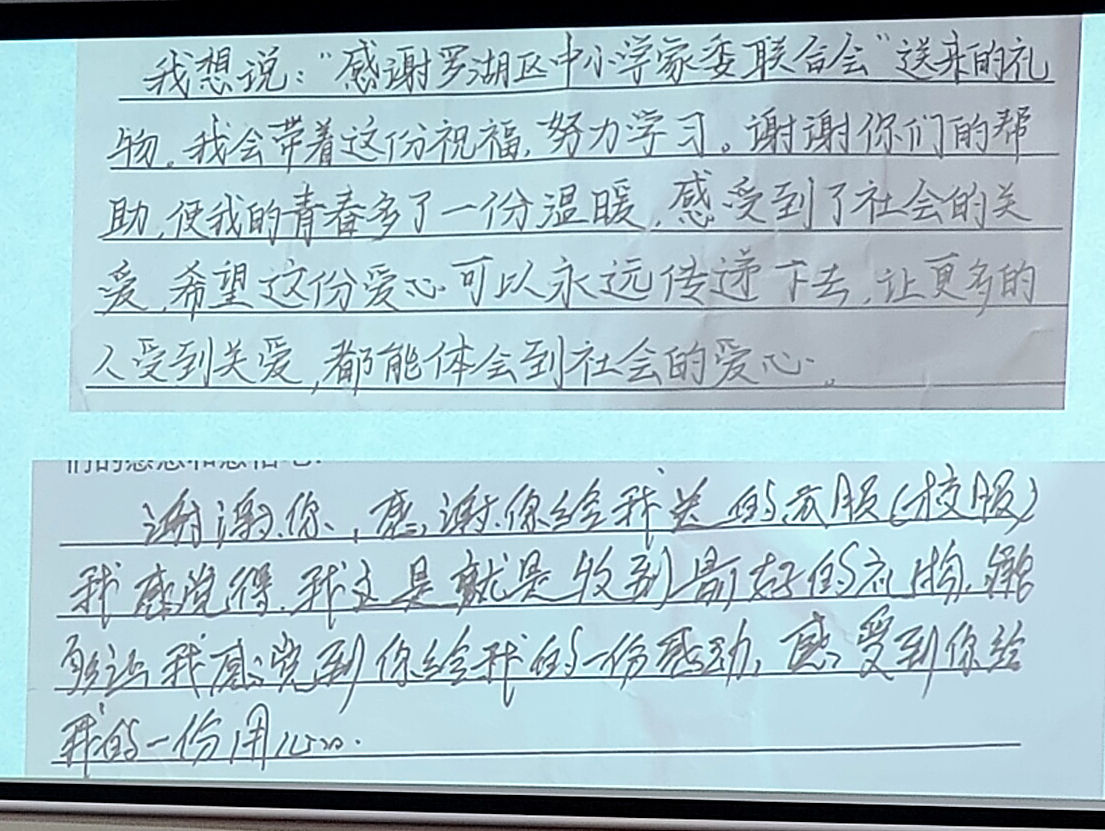 我想说：“感谢罗湖区中小学家委联合会”送来的礼
物。我会带着这份祝福，努力学习。谢谢你们的帮
助，使我的青春多了一份温暖，感受到了社会的关
爱，希望这份爱心可以永远传递下去，让更多的
人受到关爱，都能体会到社会的爱心。
谢谢你，感谢你给我送的衣服(校服)
我感觉得，我这是就是收到最好的礼物，
让我感觉到你给我的一份感动，感受到你给
我的一份用心。